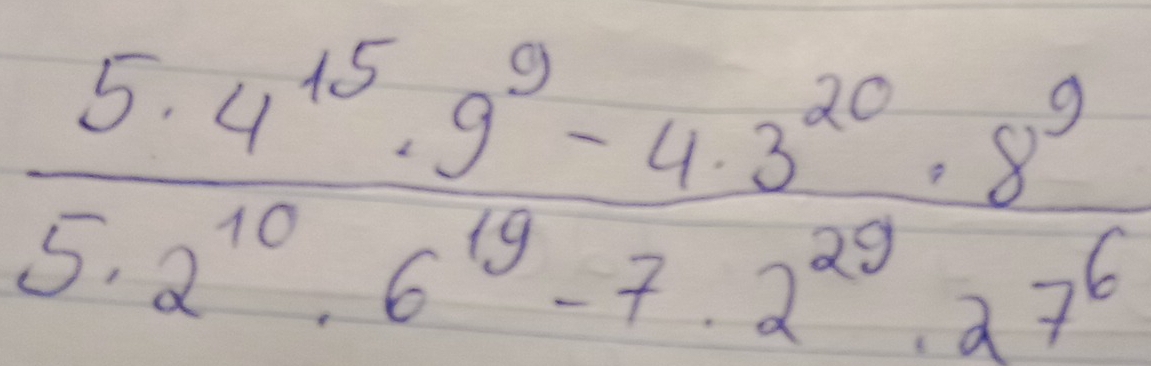 5 · 4^15 · 9^9 - 4 · 3^20 · 8^9
5 · 2^10 · 6^19 - 7 · 2^29 · 27^6